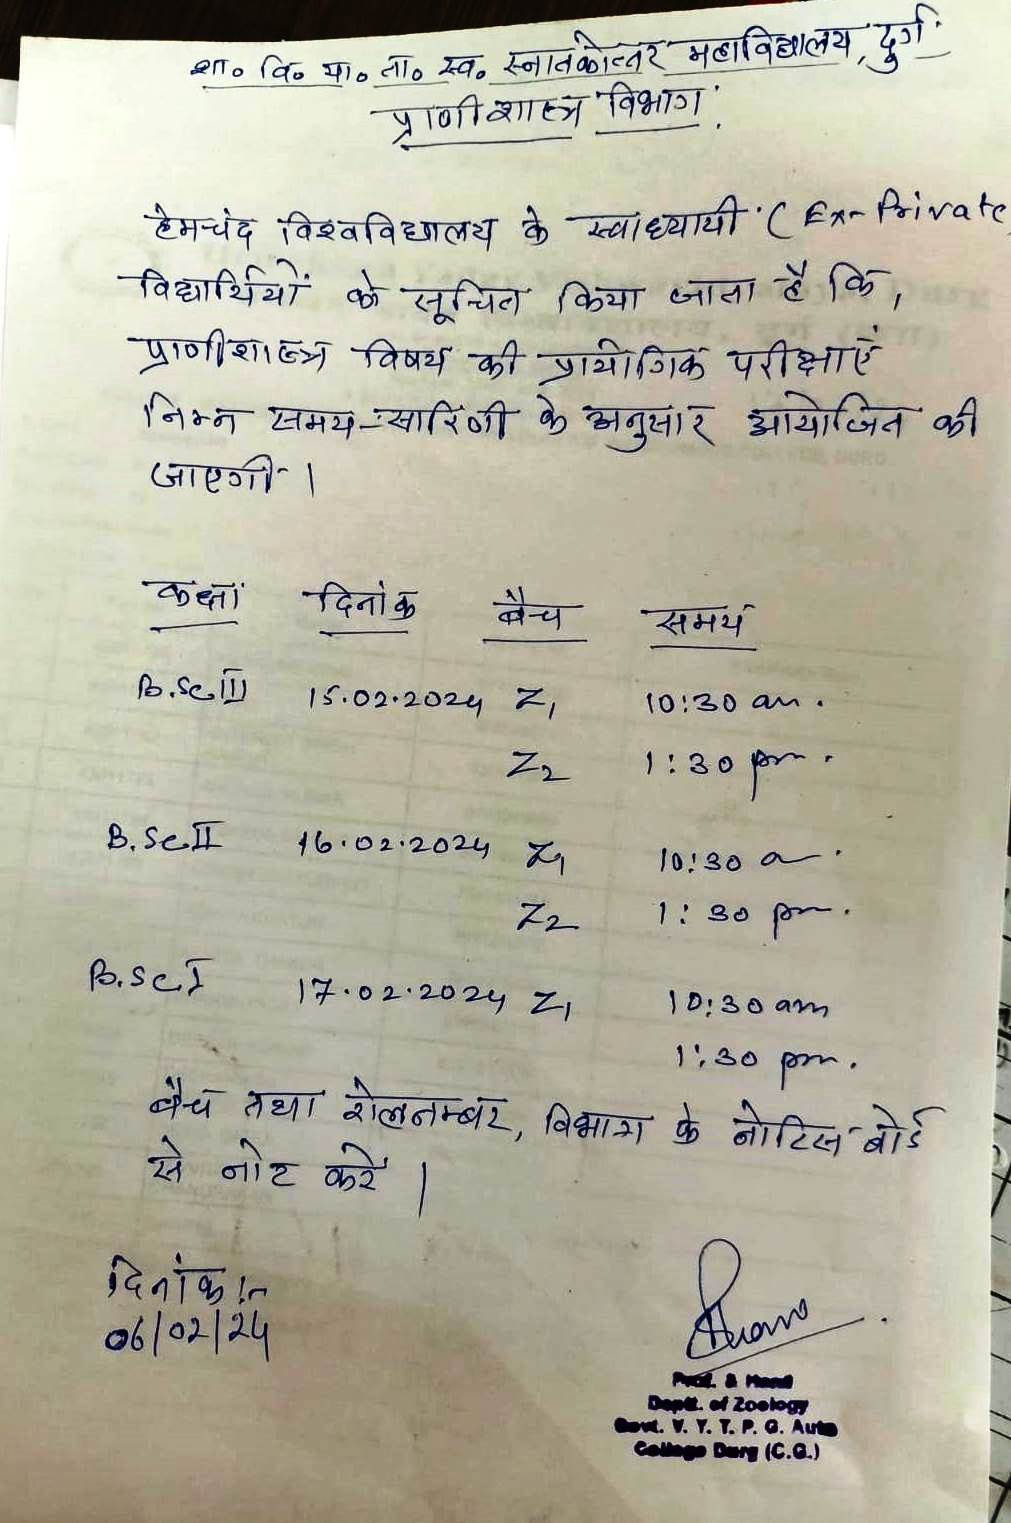 शा० वि० या० ता० स्व. स्नातकोत्तर महाविद्यालय, दुर्ग
प्राणीशास्त्र विभाग
हेमचंद विश्वविद्यालय के स्वाध्यायी (Ex-Private
विद्यार्थियों को सूचित किया जाता है कि,
प्राणीशास्त्र विषय की प्रायोगिक परीक्षाएं
निम्न समय-सारिणी के अनुसार आयोजित की
जाएगी ।
कक्षा दिनांक बैच समय
B.Sc III 15.02.2024 Z1 10:30 am.
Z2 1:30 pm.
B.Sc II 16.02.2024 Z1 10:30 a
Z2 1:30 pm.
B.Sc I 17.02.2024 Z1 10:30 am
1:30 pm.
बैच तथा रोलनम्बर, विभाग के नोटिस बोर्ड
से नोट करें ।
दिनांक :-
06/02/24
Prof. & Head
Deptt. of Zoology
Govt. V. Y. T. P. G. Auto
College Durg (C.G.)